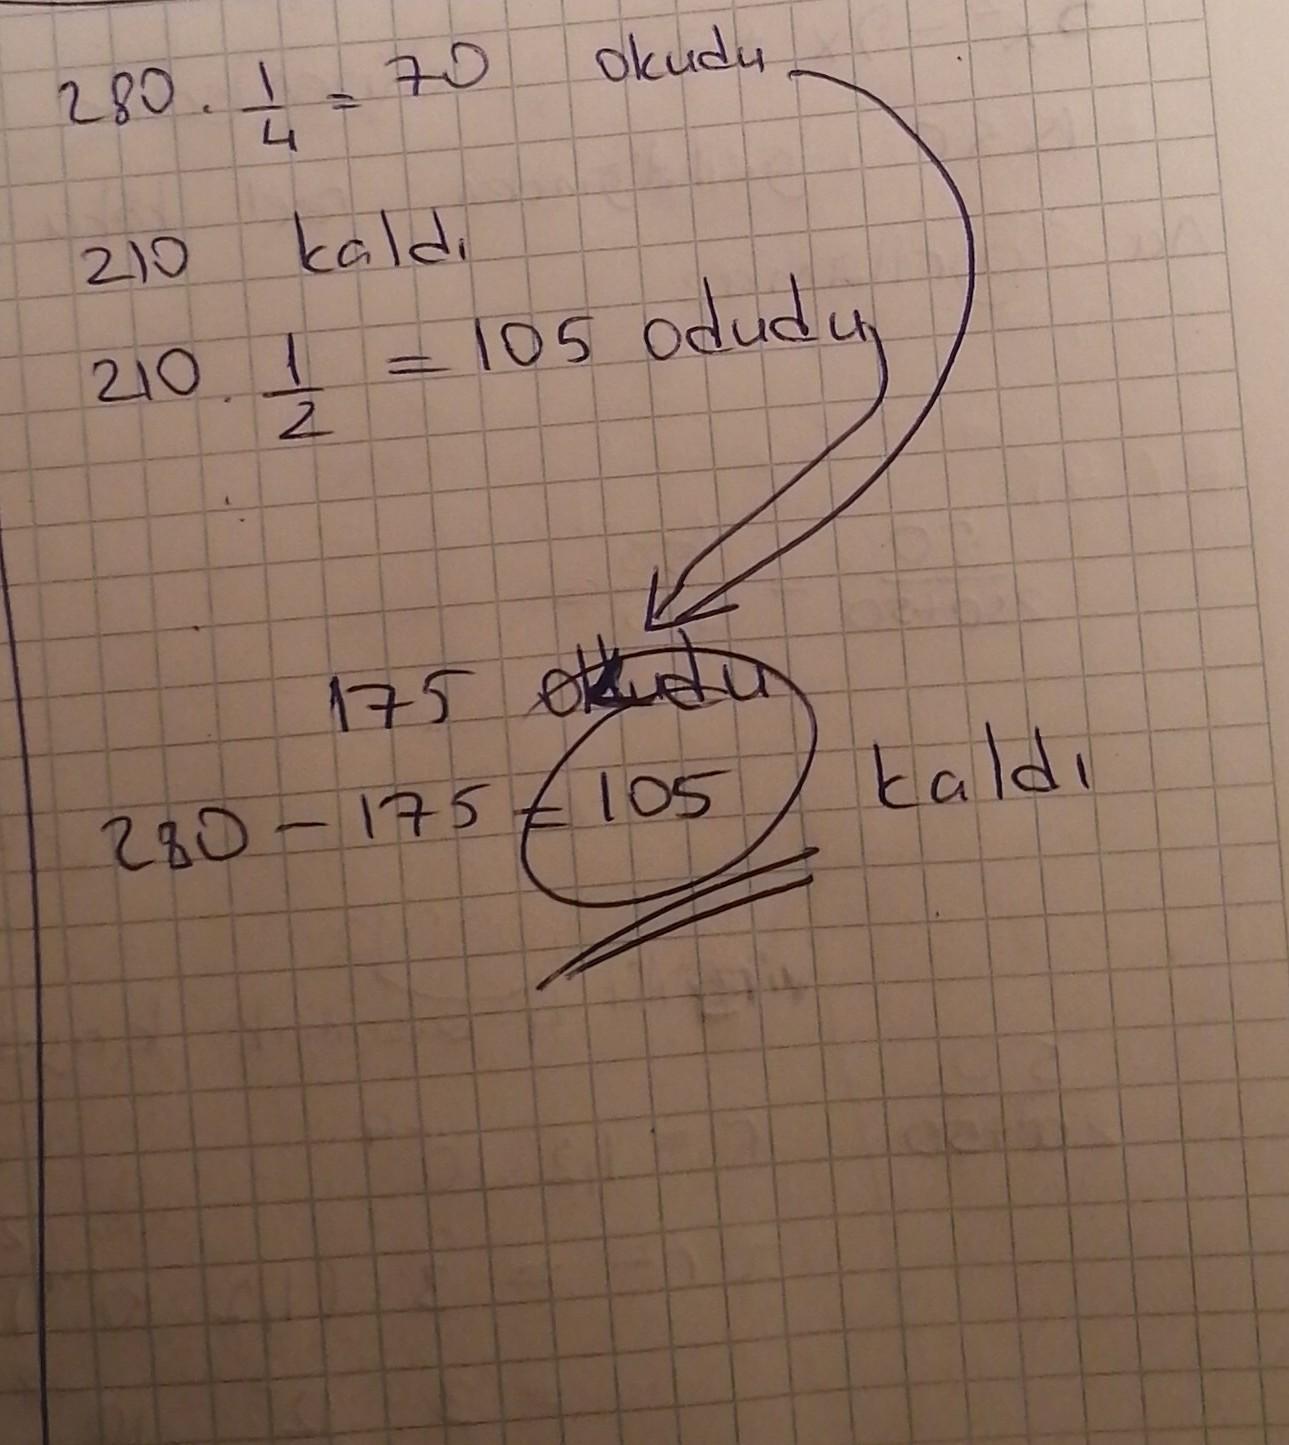 280 . 1/4 = 70 okudu
210 kaldı
210 . 1/2 = 105 odudu
175 okudu
280 - 175 = 105 kaldı